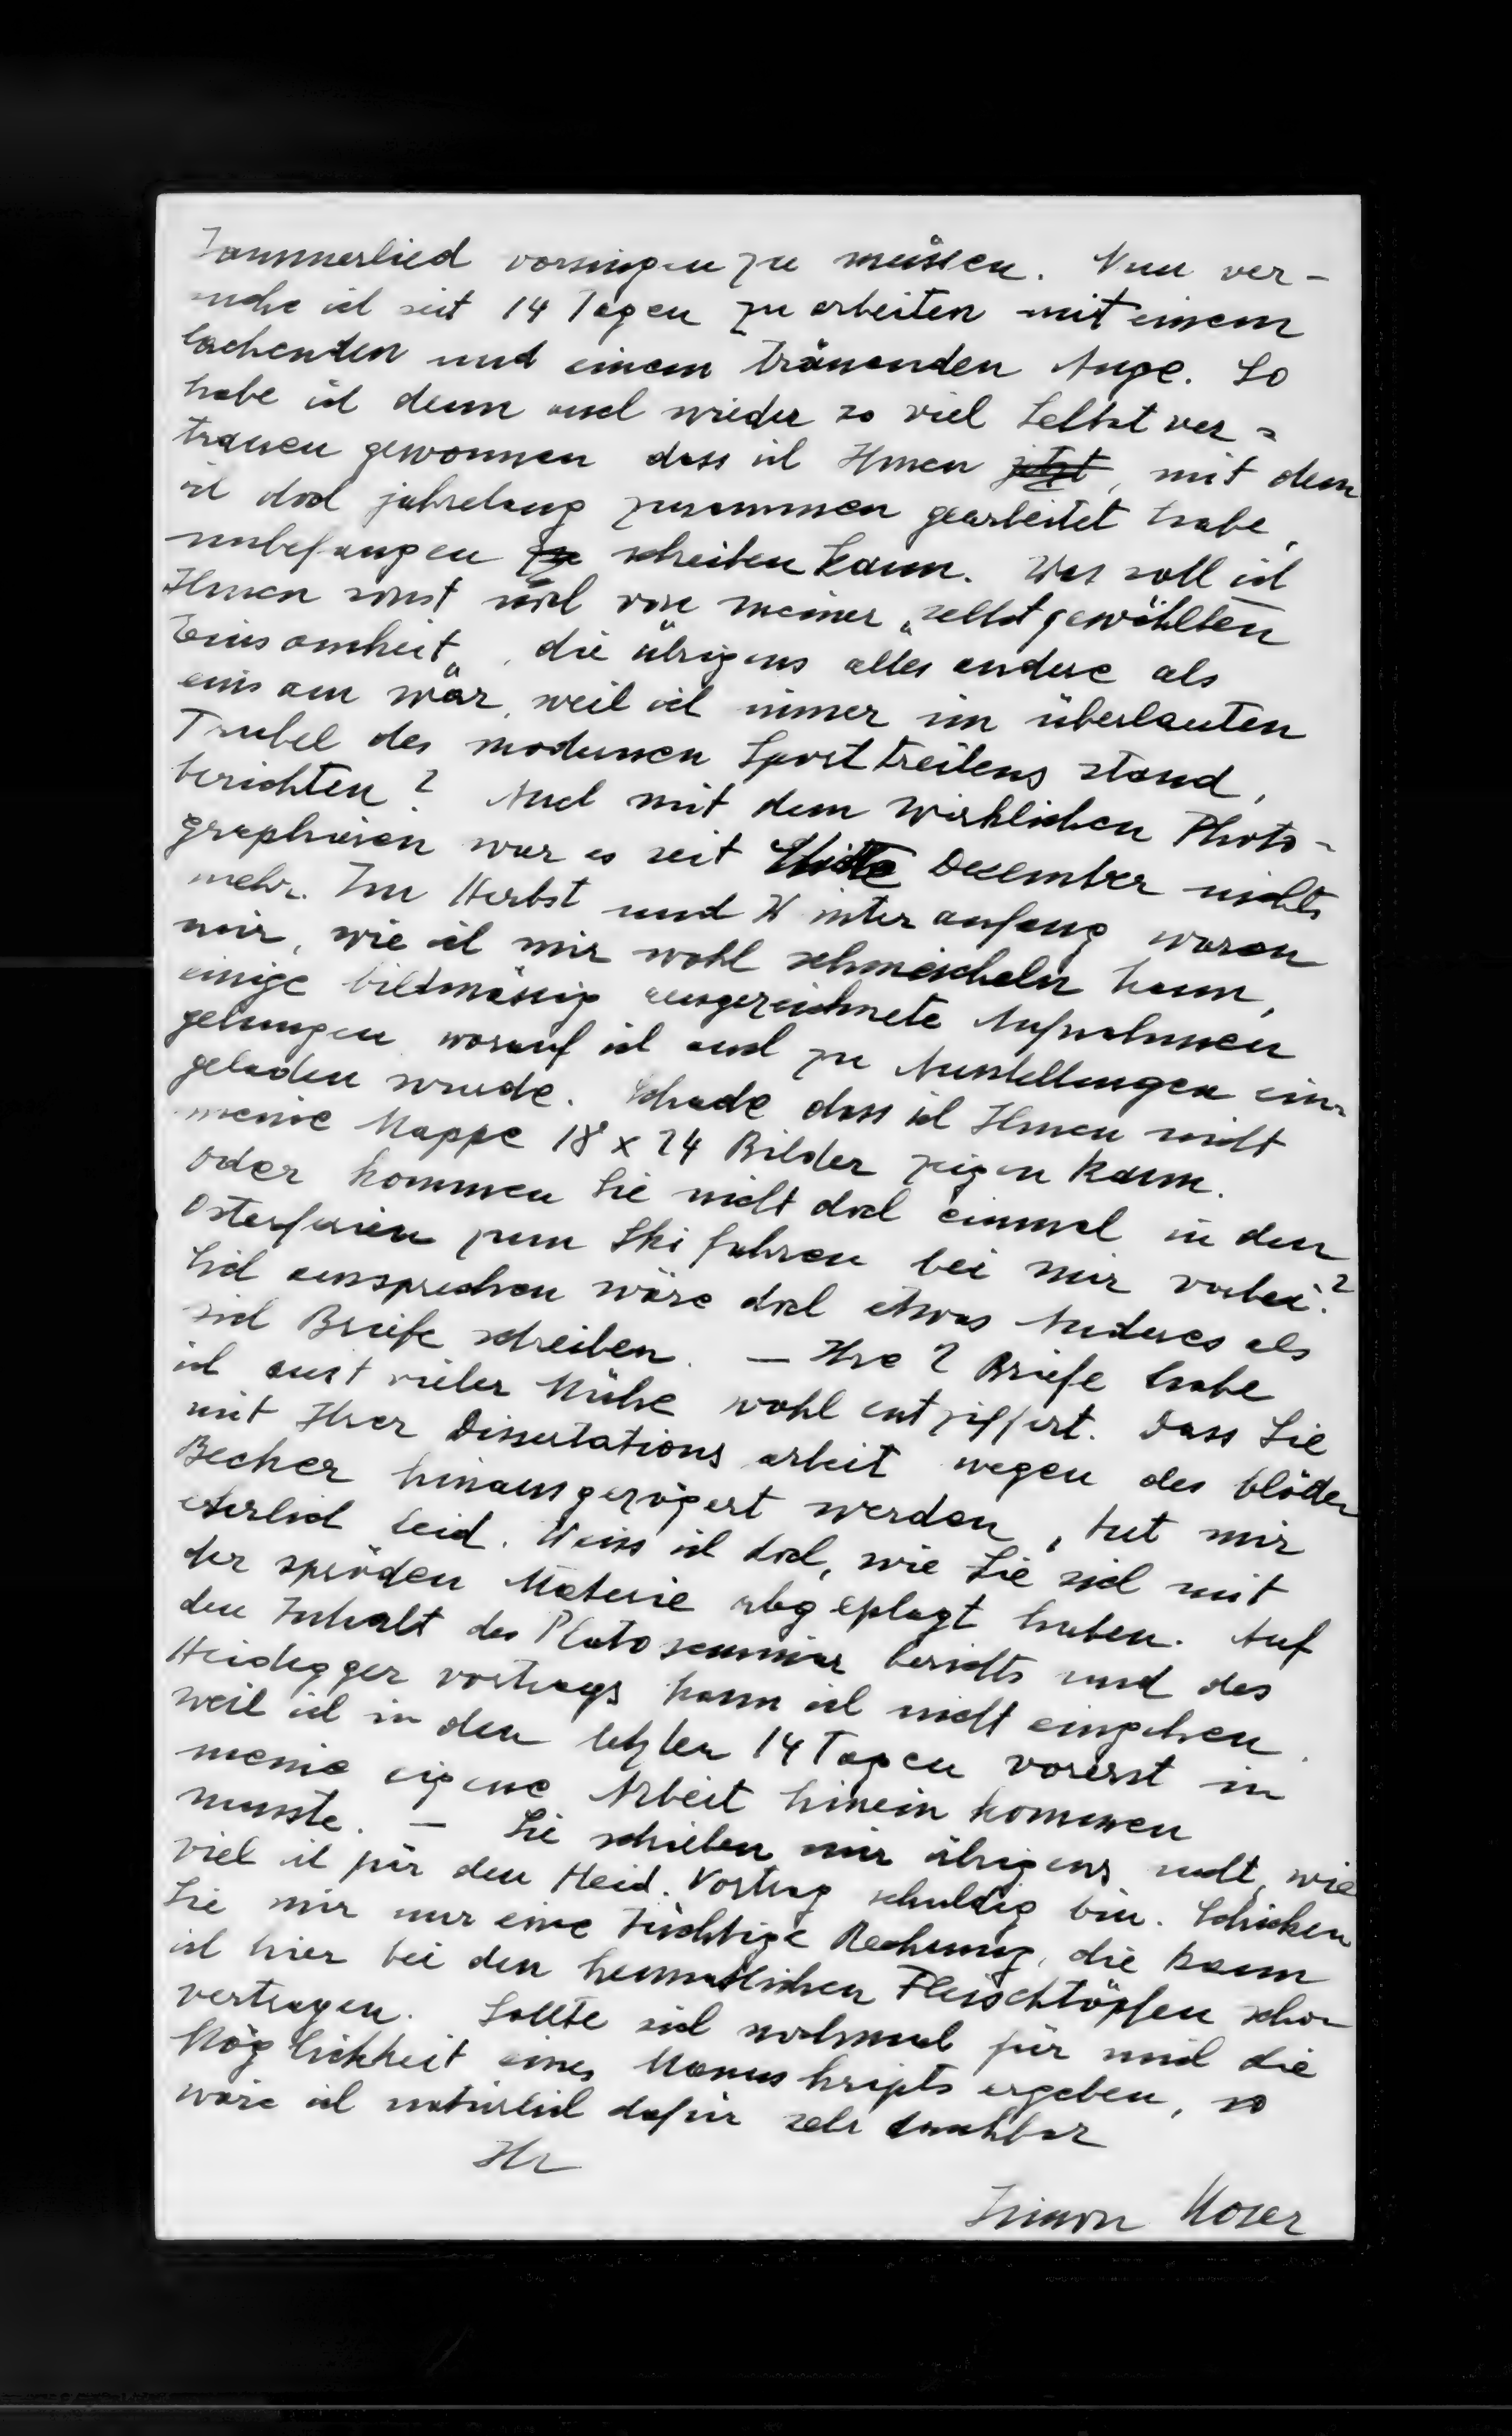 Jammerlied vorsingen zu müssen. Nun ver-
suche ich seit 14 Tagen zu arbeiten mit einem
lachenden und einem tränenden Auge. So
habe ich denn auch wieder so viel Selbstver=
trauen gewonnen dass ich Ihnen jetzt, mit dem
ich doch jahrelang zusammen gearbeitet habe,
unbefangen zu schreiben kann. Was soll ich
Ihnen sonst noch von meiner „selbstgewählten
Einsamkeit„, die übrigens alles andere als
einsam war, weil ich immer im überlauten
Trubel des modernen Sporttreibens stand,
berichten? Auch mit dem wirklichen Photo-
graphieren war es seit Mitte Dezember nichts
mehr. Im Herbst und Winteranfang waren
mir, wie ich mir wohl schmeicheln kann,
einige bildmässig ausgezeichnete Aufnahmen
gelungen worauf ich auch zu Ausstellungen ein-
geladen wurde. Schade dass ich Ihnen nicht
meine Mappe 18 x 24 Bilder zeigen kann.
Oder kommen Sie nicht doch einmal in den
Osterferien zum Ski fahren bei mir vorbei?
Sich aussprechen wäre doch etwas Anderes als
sich Briefe schreiben. – Ihre 2 Briefe habe
ich mit vieler Mühe wohl entziffert. Dass Sie
mit Ihrer Dissertationsarbeit wegen des blöden
Becher hinausgezögert werden, tut mir
ehrlich leid. Weiss ich doch, wie Sie sich mit
der spröden Materie abgeplagt haben. Auf
den Inhalt des Platoseminar berichts und des
Heidegger vortrags kann ich nicht eingehen.
weil ich in den letzten 14 Tagen vorerst in
meine eigene Arbeit hinein kommen
musste. – Sie schrieben mir übrigens nicht, wie
viel ich für den Heid. Vortrag schuldig bin. Schicken
Sie mir nur eine tüchtige Rechnung, die kann
ich hier bei den heimatlichen Fleischtöpfen schon
vertragen. Sollte sich nochmal für mich die
Möglichkeit eines Manuskripts ergeben, so
wäre ich natürlich dafür sehr dankbar
Ihr
Simon Moser